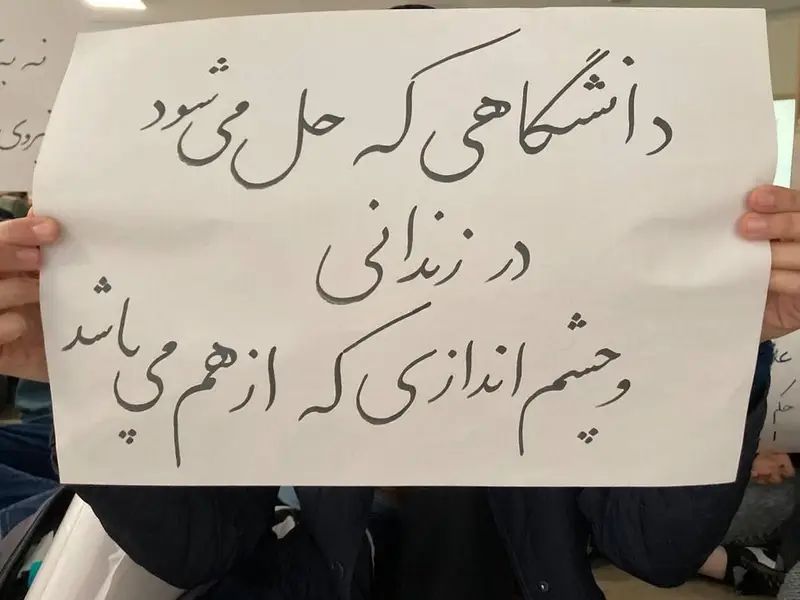 دانشگاهی که حل می‌شود
در زندانی
و چشم اندازی که از هم می پاشد
نه